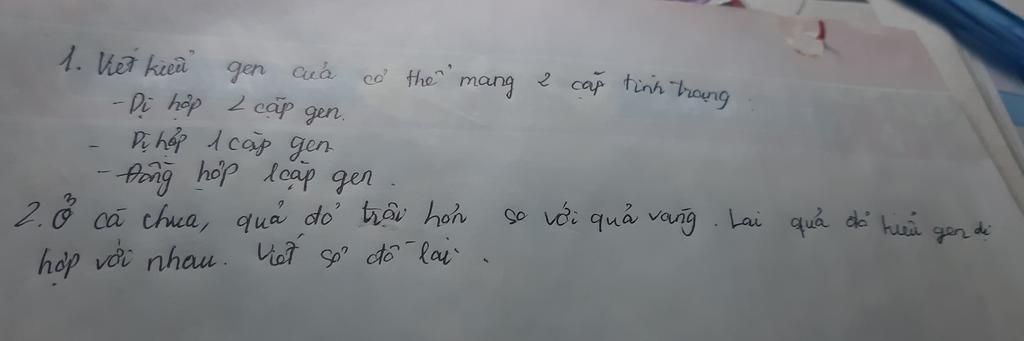 1. Viết kiểu gen của cơ thể mang 2 cặp tính trạng.
- Dị hợp 2 cặp gen.
- Dị hợp 1 cặp gen
- Đồng hợp 1 cặp gen.
2. Ở cà chua, quả đỏ trội hơn so với quả vang. Lai quả đỏ kiểu gen dị
hợp với nhau. Viết sơ đồ lai.